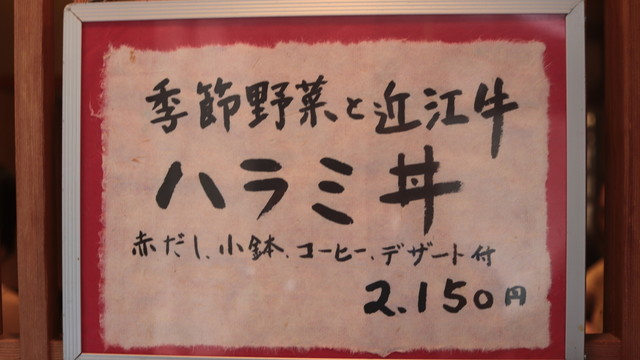 季節野菜と近江牛
ハラミ丼
赤だし、小鉢、コーヒー、デザート付
2.150円